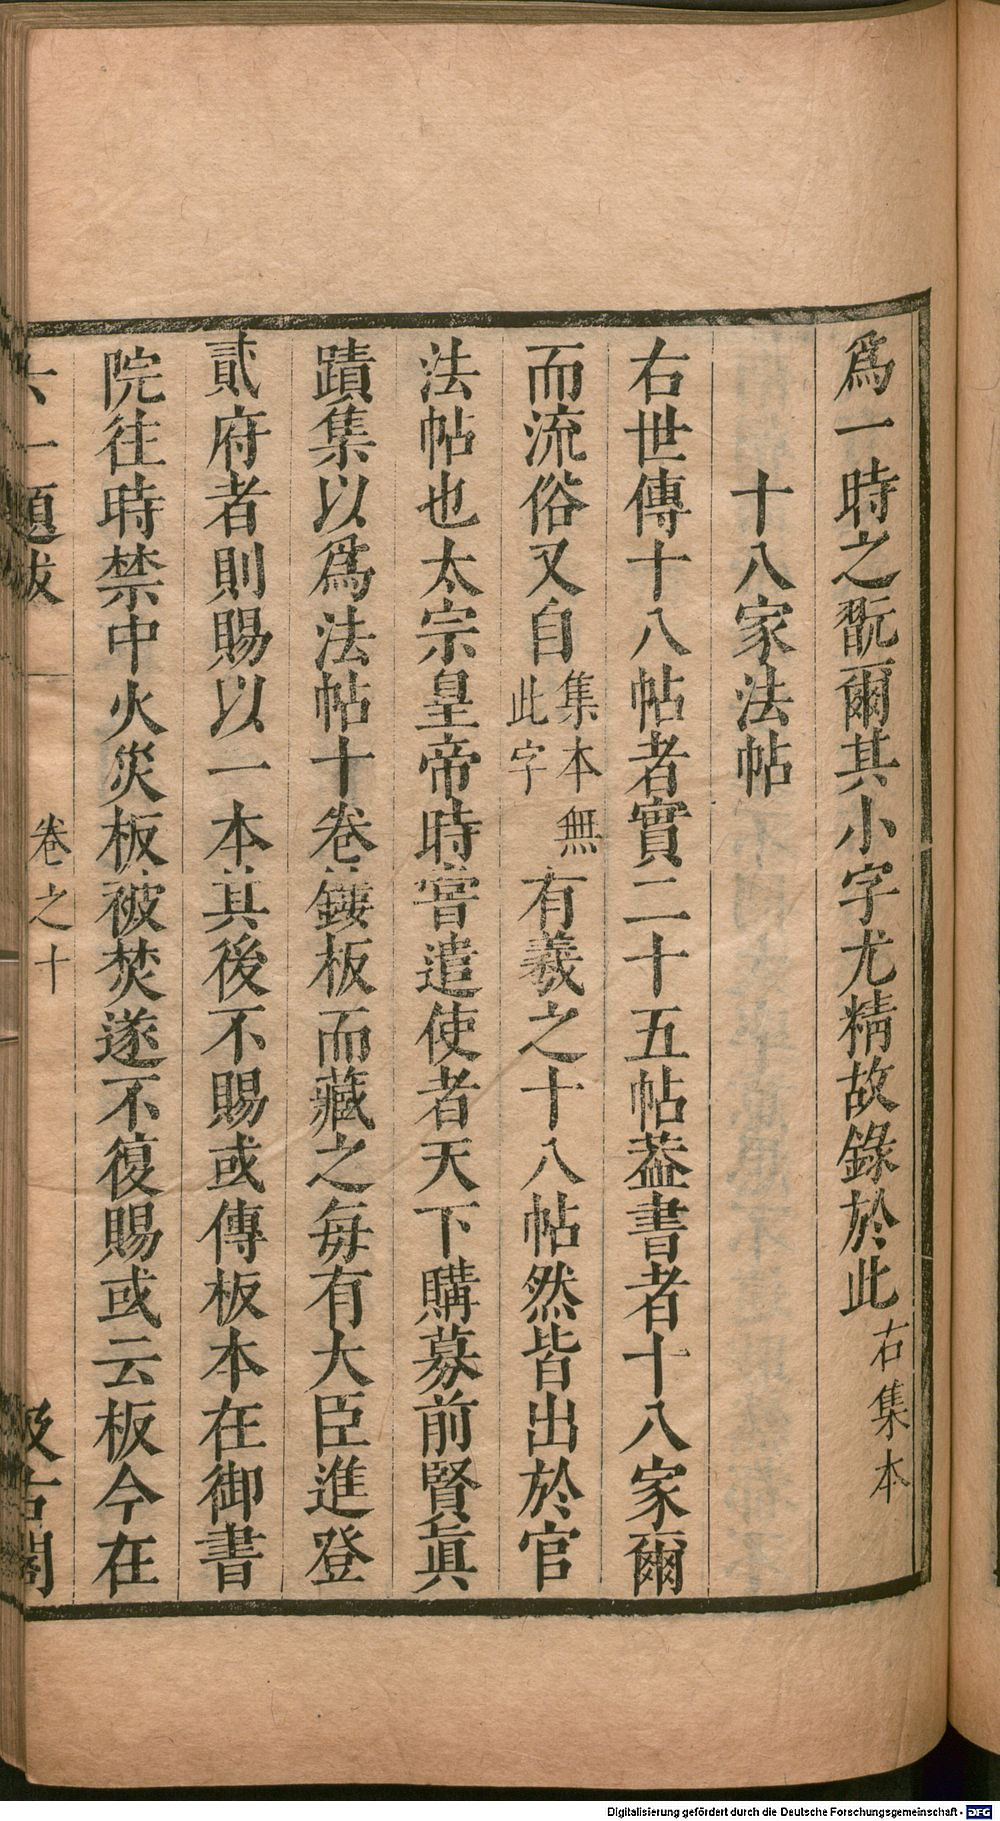 爲一時之翫爾其小字尤精故錄於此右集本
十八家法帖
右世傳十八帖者實二十五帖葢書者十八家爾
而流俗又自集本無此字有羲之十八帖然皆出於官
法帖也太宗皇帝時嘗遣使者天下購募前賢眞
蹟集以爲法帖十卷鏤板而藏之每有大臣進登
貳府者則賜以一本其後不賜或傳板本在御書
院往時禁中火災板被焚遂不復賜或云板今在
六一題跋 卷之十 汲古閣
Digitalisierung gefördert durch die Deutsche Forschungsgemeinschaft - DFG